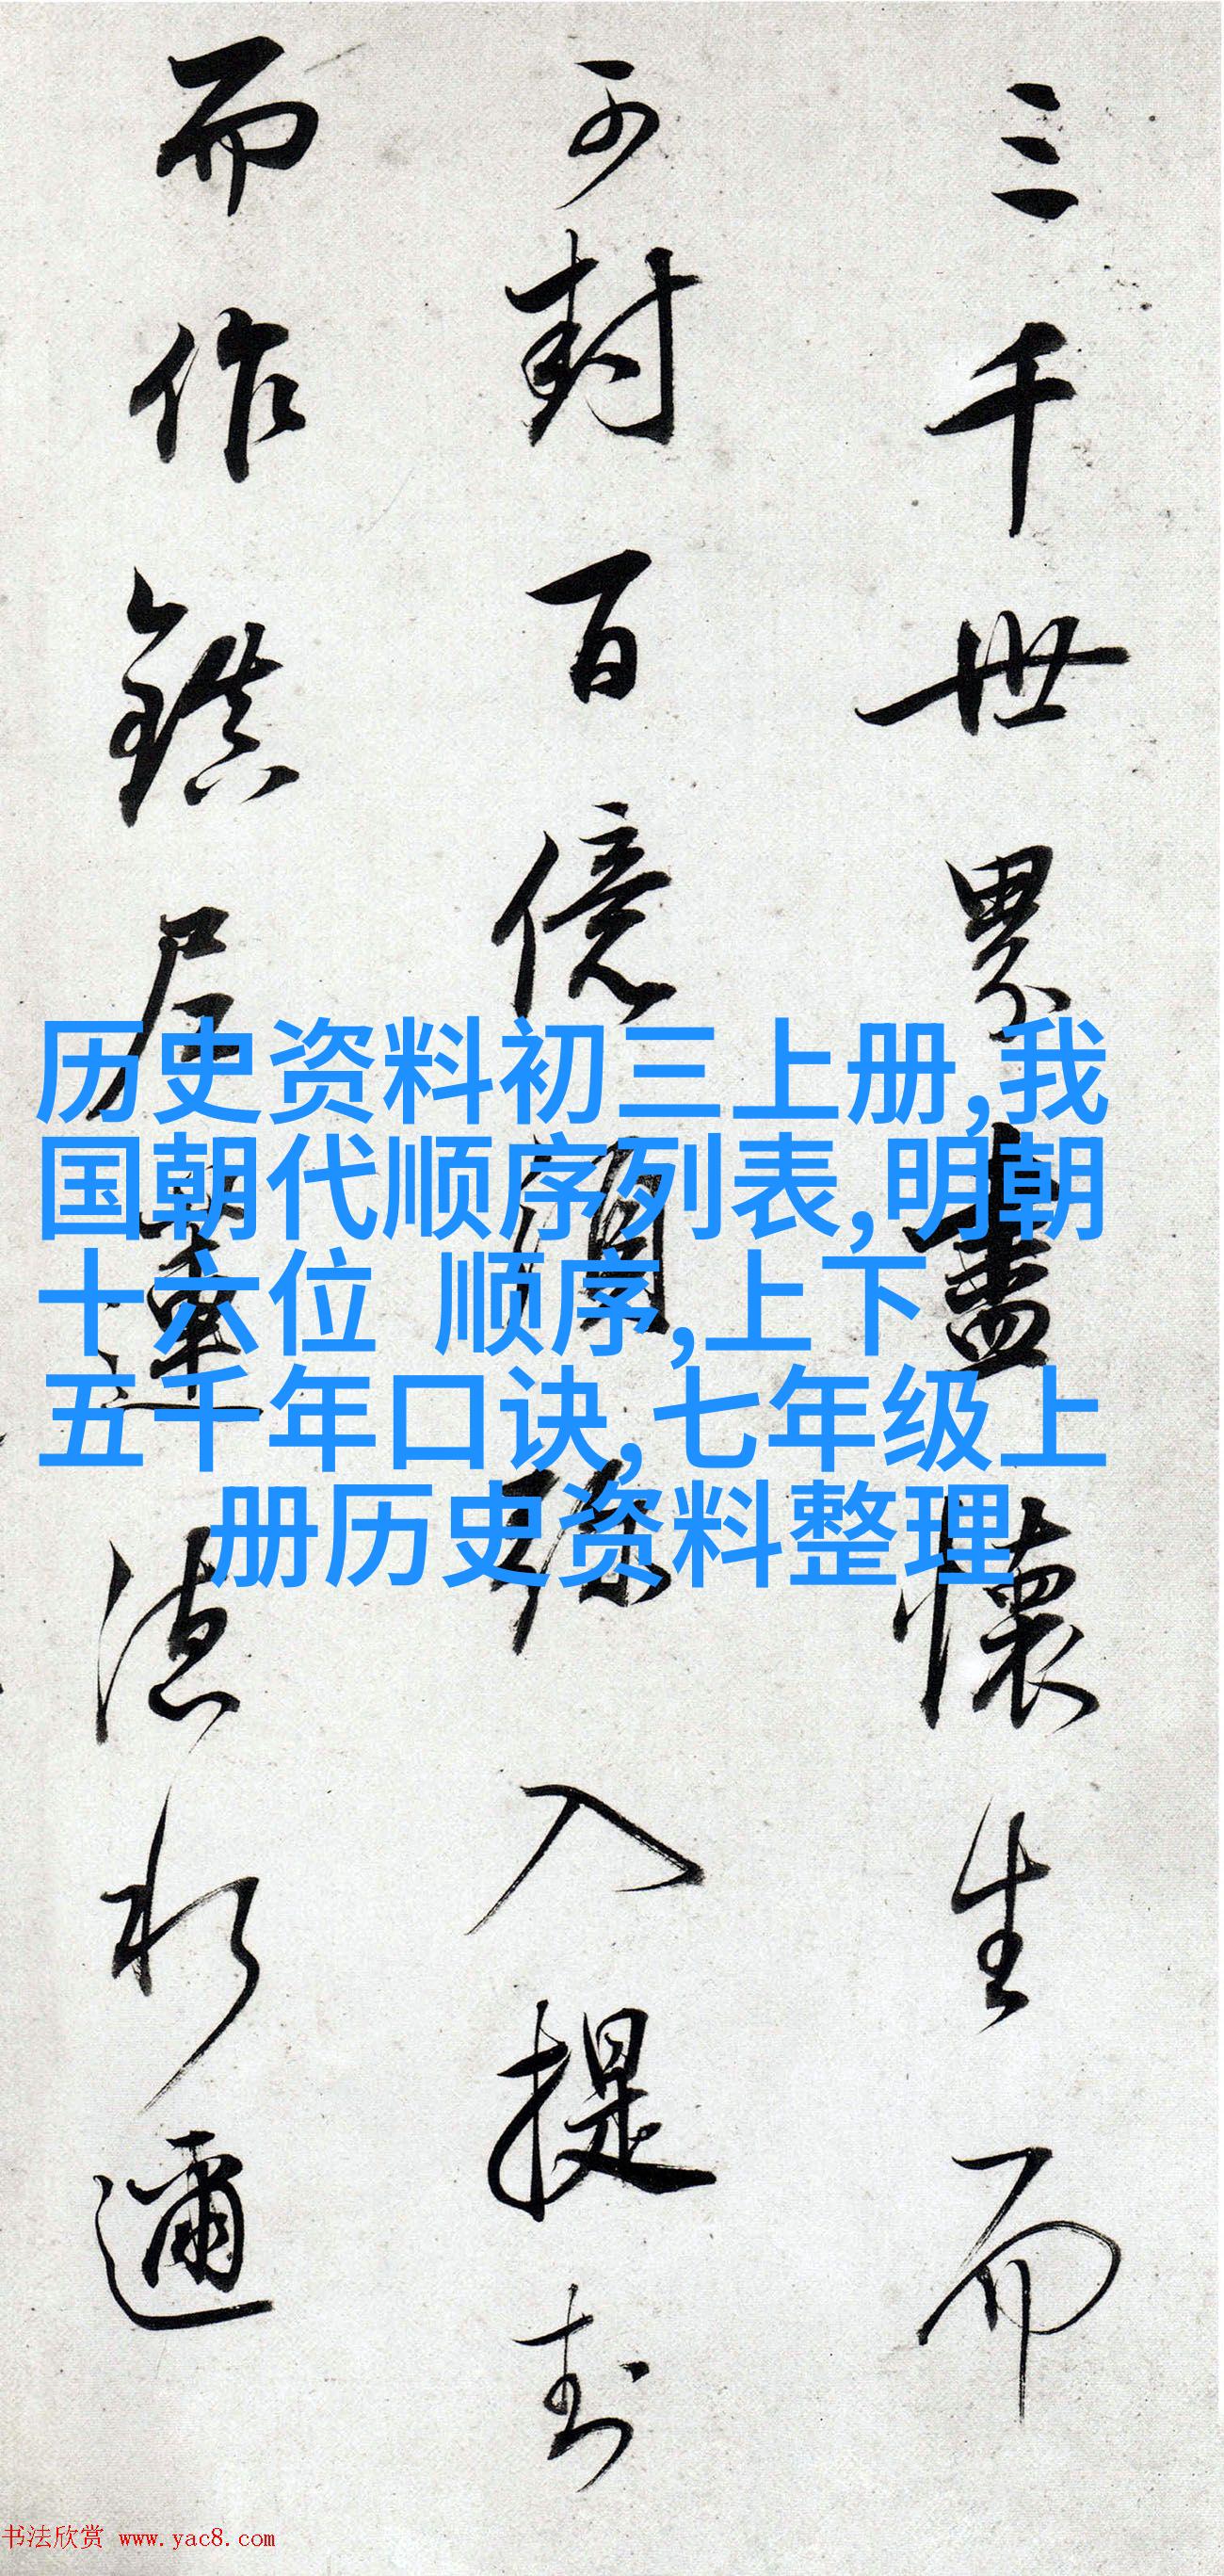 三千世界盡懷生而
不封百億須弥入提封
而作鎮居蓮
邇
历史资料初三上册,我
国朝代顺序列表,明朝
十六位 顺序,上下
五千年口诀,七年级上
册历史资料整理
书法欣赏 www.yac8.com